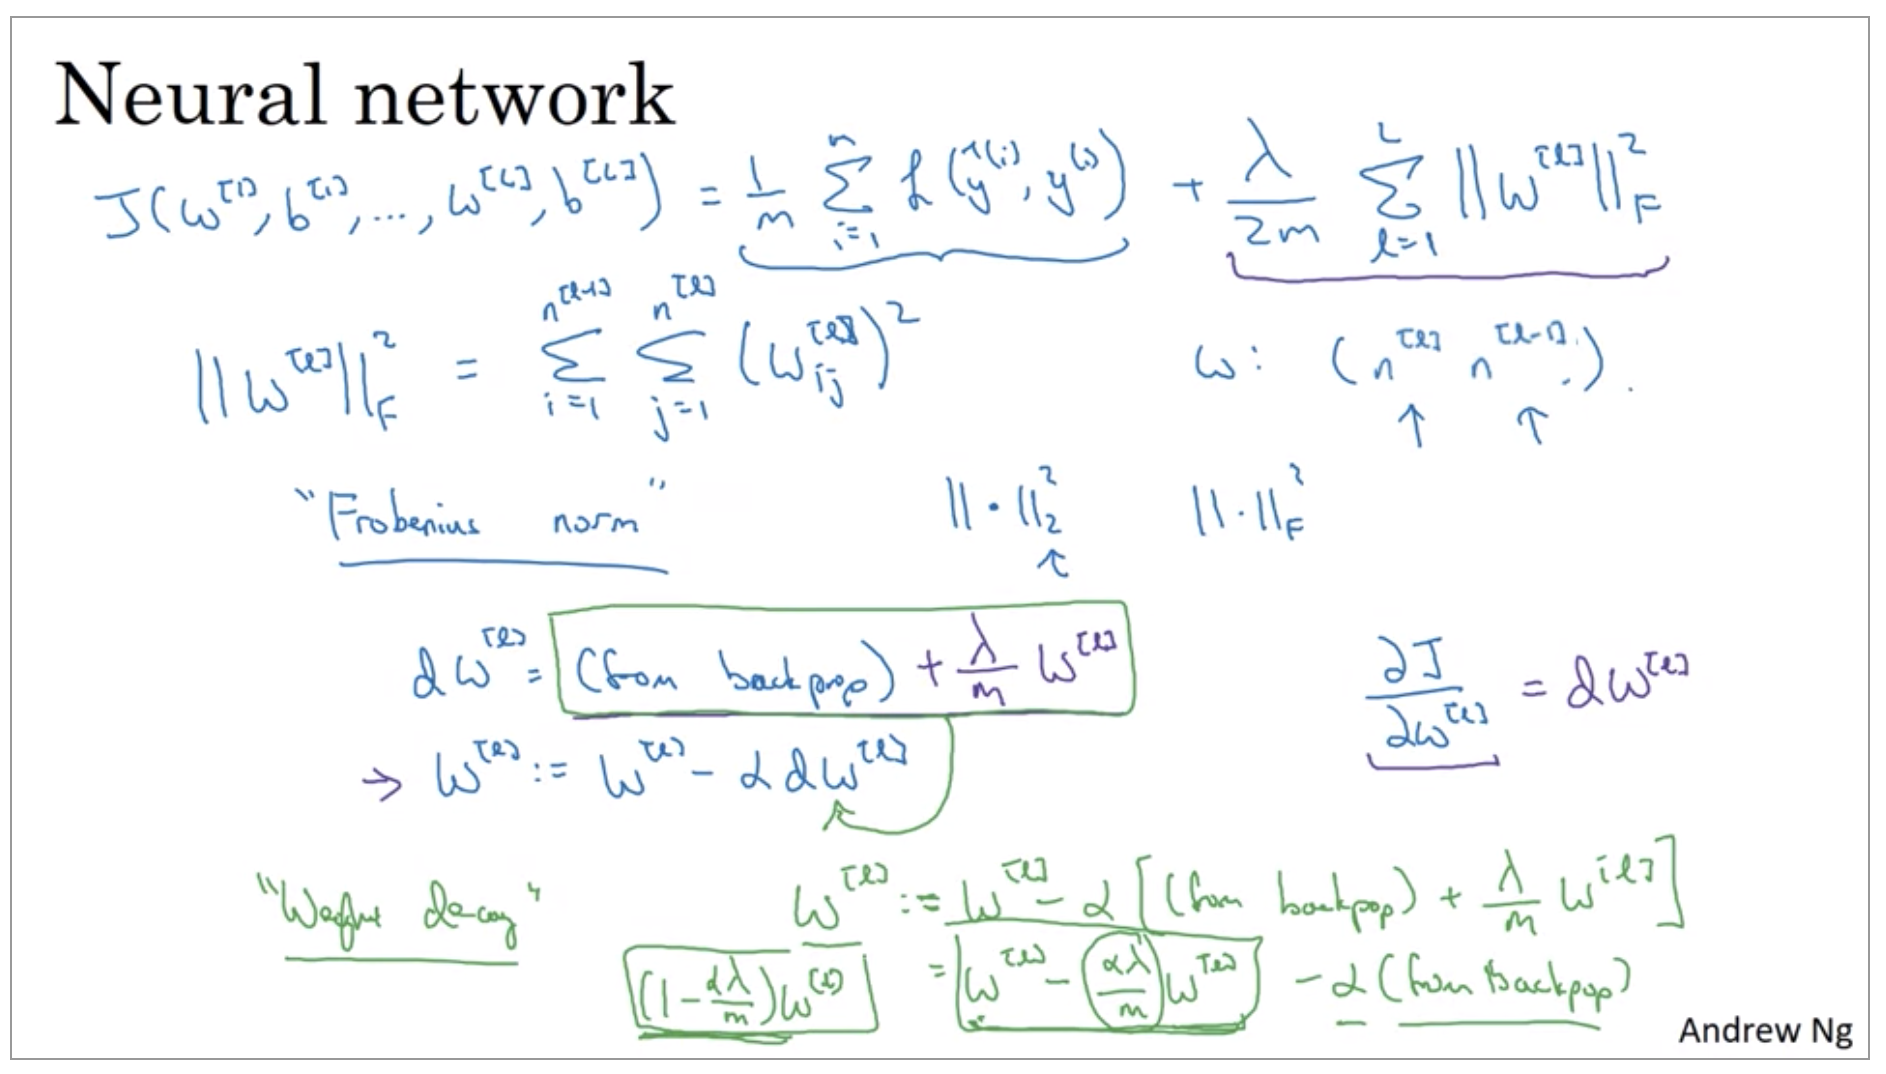 Neural network
J(w^[1], b^[1], ..., w^[L], b^[L]) = 1/m Σ_{i=1}^{n} ℒ(ŷ^(i), y^(i)) + λ/2m Σ_{l=1}^{L} ||w^[l]||_F^2
||w^[l]||_F^2 = Σ_{i=1}^{n^[l-1]} Σ_{j=1}^{n^[l]} (w_ij^[l])^2 w: (n^[l] n^[l-1]).
"Frobenius norm" ||·||_2^2 ||·||_F^2
dw^[l] = (from backprop) + λ/m w^[l] ∂J/∂w^[l] = dw^[l]
→ w^[l] := w^[l] - α dw^[l]
"Weight decay" w^[l] := w^[l] - α[(from backpop) + λ/m w^[l]]
(1 - αλ/m) w^[l] = w^[l] - αλ/m w^[l] - α(from backpop)
Andrew Ng